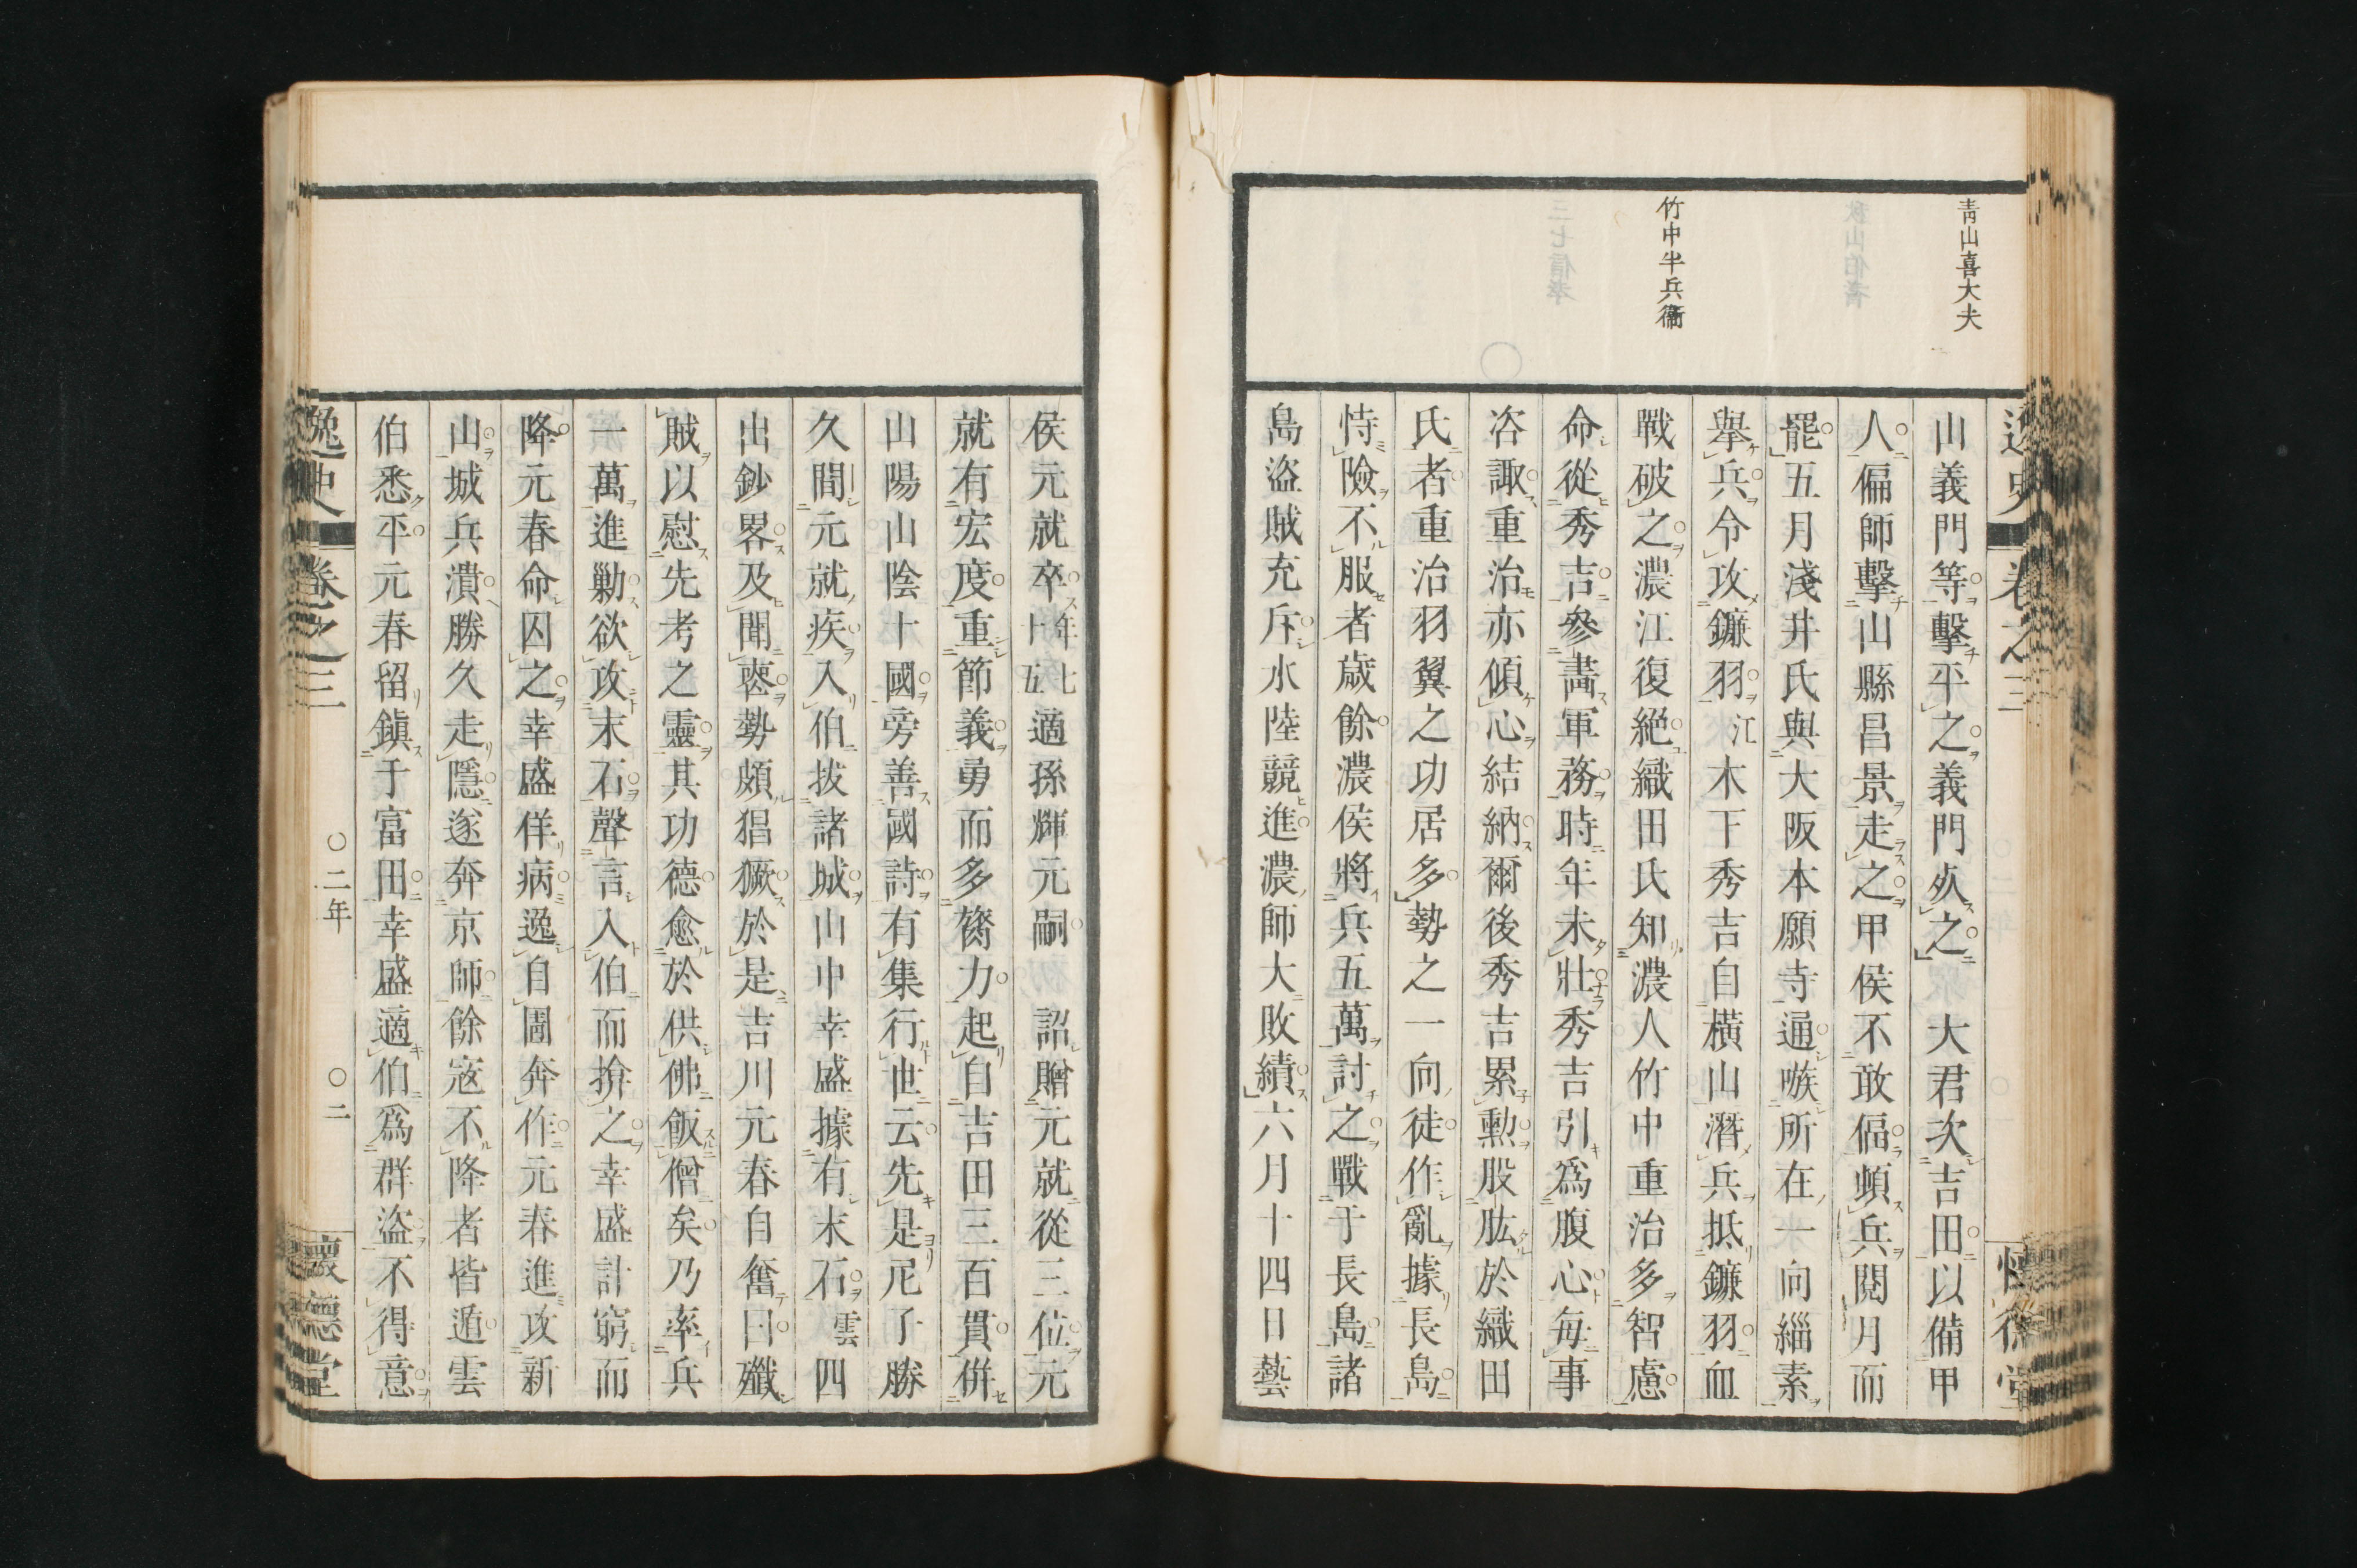 青山喜大夫
竹中半兵衞
山義門等擊平之義門歿之　大君次吉田以備甲
人偏師擊山縣昌景走之甲侯不敢偪頓兵閱月而
罷五月淺井氏與大阪本願寺通嗾所在一向緇素
舉兵令攻鐮羽江木下秀吉自橫山潛兵抵鐮羽血
戰破之濃江復絕織田氏知濃人竹中重治多智慮
命從秀吉參畫軍務時年未壯秀吉引爲腹心每事
咨諏重治亦傾心結納爾後秀吉累勳股肱於織田
氏者重治羽翼之功居多勢之一向徒作亂據長島
恃險不服者歲餘濃侯將兵五萬討之戰于長島諸
島盜賊充斥水陸競進濃師大敗績六月十四日藝
侯元就卒年七十五適孫輝元嗣　詔贈元就從三位元
就有宏度重節義勇而多膂力起自吉田三百貫併
山陽山陰十國旁善國詩有集行世云先是尼子勝
久間元就疾入伯拔諸城山中幸盛據有末石雲四
出鈔畧及聞喪勢頗猖獗於是吉川元春自奮曰殲
賊以慰先考之靈其功德愈於供佛飯僧矣乃率兵
一萬進勦欲攻末石聲言入伯而揜之幸盛計窮而
降元春命囚之幸盛佯病逸自圊奔作元春進攻新
山城兵潰勝久走隱遂奔京師餘寇不降者皆遁雲
伯悉平元春留鎭于富田幸盛適伯爲群盜不得意
逸史　卷之三　○二年　○二　懷德堂